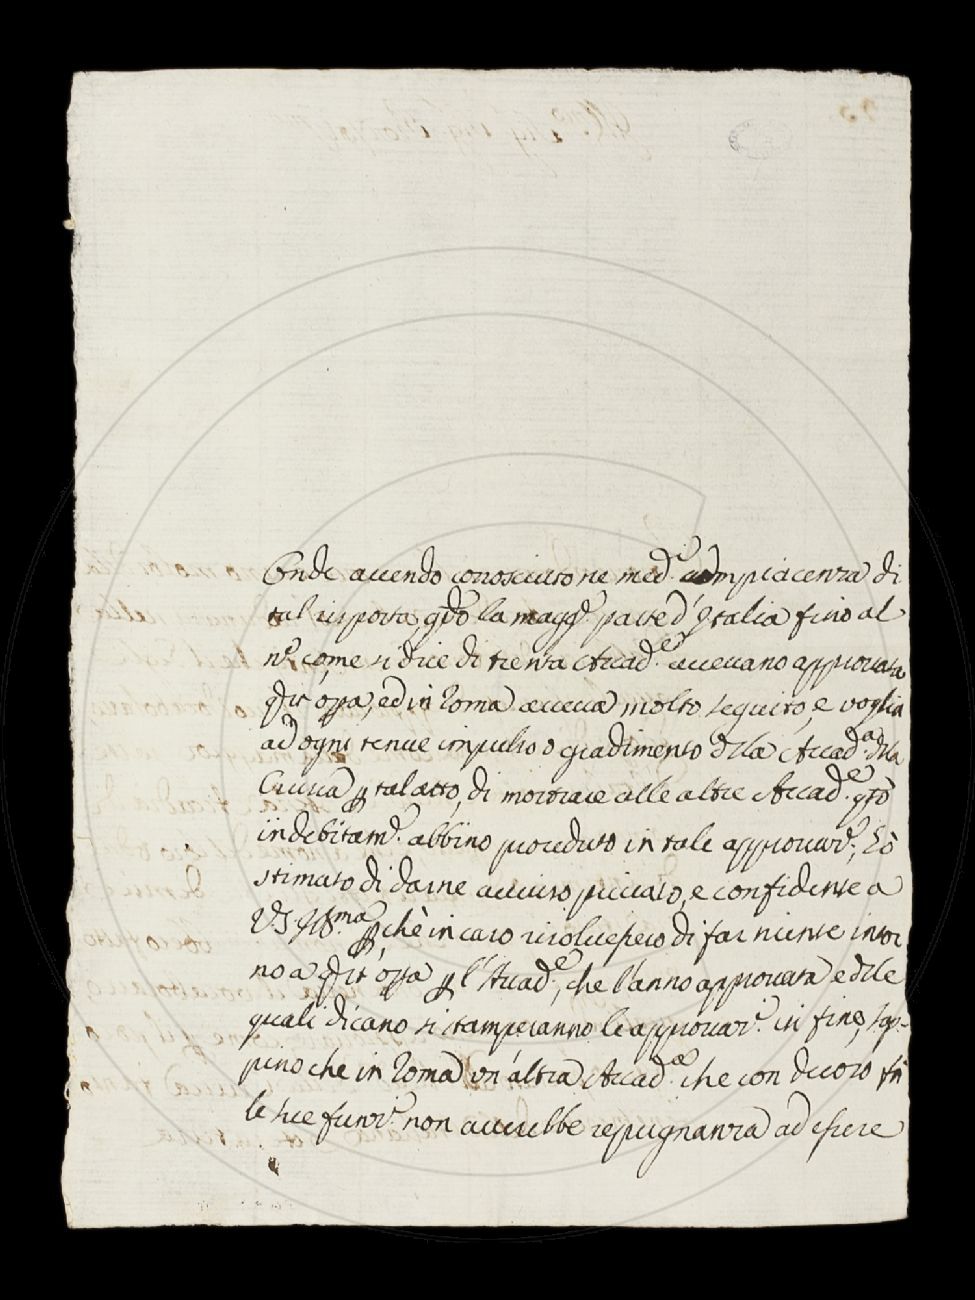 Onde avendo conosciuto ne med.e compiacenza di
tal risposta, q.do la magg.e parte d'Italia fino al
n.o come si dice di trenta Accad.e avevano approvata
q.st'opa, ed in Roma aveva molto seguito, e voglia
ad ogni tenue impulso o gradimento dela Accad.a dela
Crusca p tal atto, di mostrare alle altre Accad.e q.to
indebitam.e abbino proceduto in tale approvar.e, hò
stimato di darne avviso privato, e confidente a
V.S. Ill.ma pchè in caso risolvessero di far niente intor
no a q.st'opa p l'Accad.e, che l'anno approvata e dele
quali dicano si stamperanno le approvaz.i in fine, sap-
pino che in Roma un'altra Accad.a che con decoro fà
le sue funz.i non averebbe repugnanza ad essere